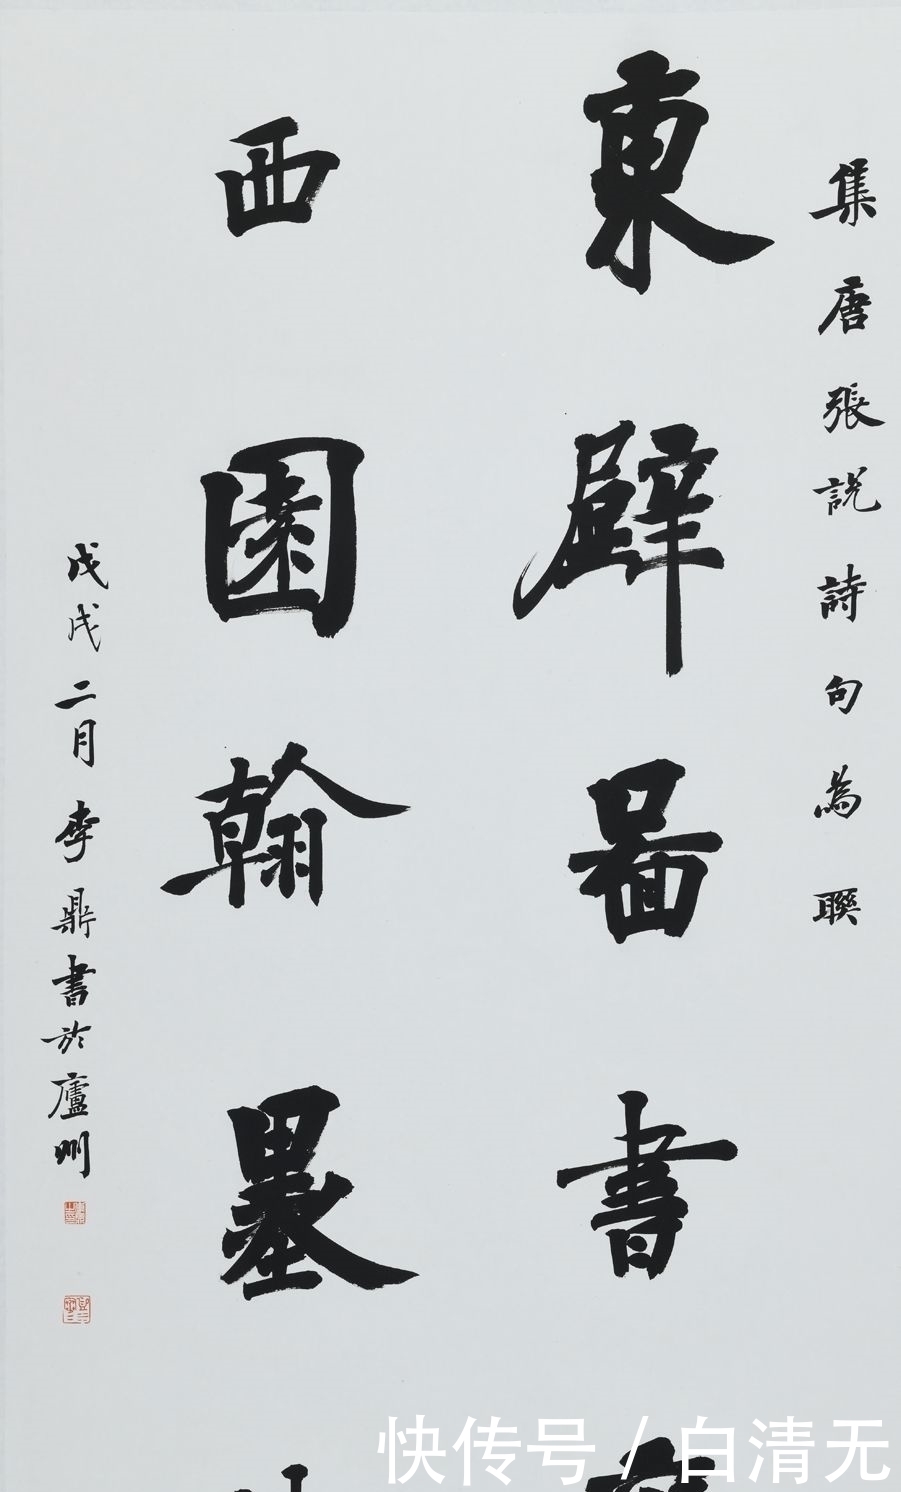 集唐張説詩句為聯
東壁圖書
西園翰墨
戊戌二月李鼎書於廬州
快传号 / 白清无